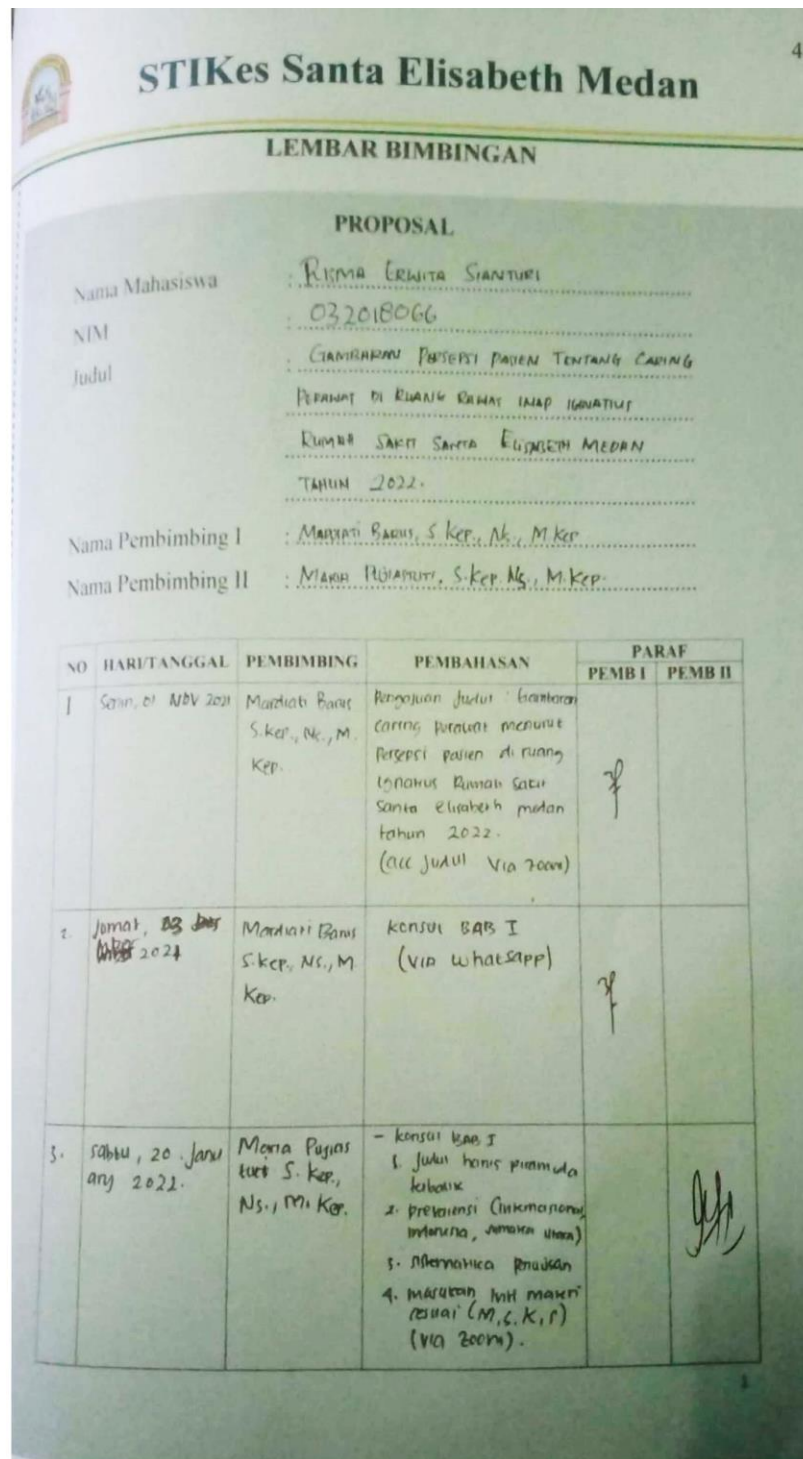 4
STIKes Santa Elisabeth Medan
LEMBAR BIMBINGAN
PROPOSAL
Nama Mahasiswa : RISMA ERWITA SIANTURI
NIM : 032018066
Judul : GAMBARAN PERSEPSI PASIEN TENTANG CARING
PERAWAT DI RUANG RAWAT INAP IGNATIUS
RUMAH SAKIT SANTA ELISABETH MEDAN
TAHUN 2022.
Nama Pembimbing I : MARDIATI BARUS, S.Kep., Ns., M.Kep
Nama Pembimbing II : MARIA PUJIASTUTI, S.Kep. Ns., M.Kep.
NO HARI/TANGGAL PEMBIMBING PEMBAHASAN PARAF
PEMB I PEMB II
1 Senin, 01 NOV 2021 Mardiati Barus Pengajuan Judul : Gambaran
S.Kep., Ns., M. caring perawat menurut
Kep. Persepsi pasien di ruang
Ignatius Rumah Sakit
Santa elisabeth medan
tahun 2022.
(acc judul via zoom)
2. Jumat, 03 Mardiati Barus konsul BAB I
2021 S.kep., Ns., M (via whatsapp)
Kep.
3. sabtu, 20 Janu Maria Pujias - konsul BAB I
ary 2022. tuti S. Kep., 1. Judul harus piramida
Ns., M. Kep. terbalik
2. prevalensi (Internasional,
Indonesia, sumatra utara)
3. sistematika penulisan
4. masukan inti materi
sesuai (M,S,K,S)
(via zoom).